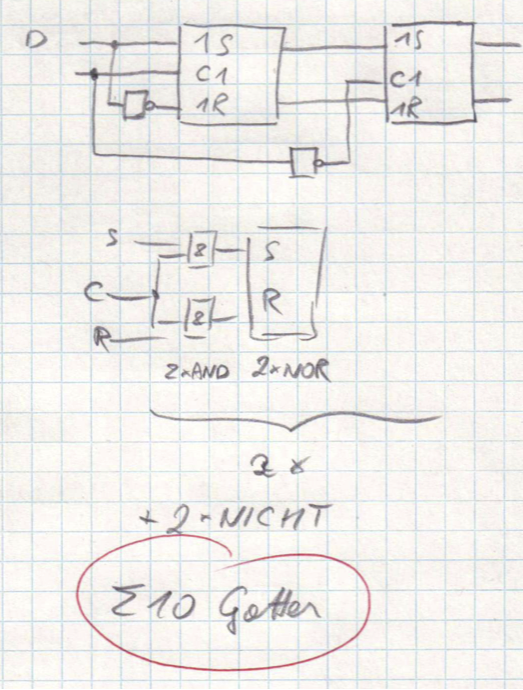 D 1S 1S
C1 C1
1R 1R
S & S
C
R & R
2×AND 2×NOR
2 ×
+ 2×NICHT
Σ10 Gatter